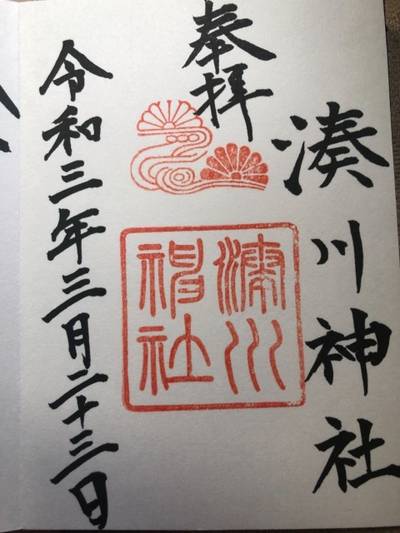 奉拝
湊川神社
湊川神社
令和三年三月二十三日